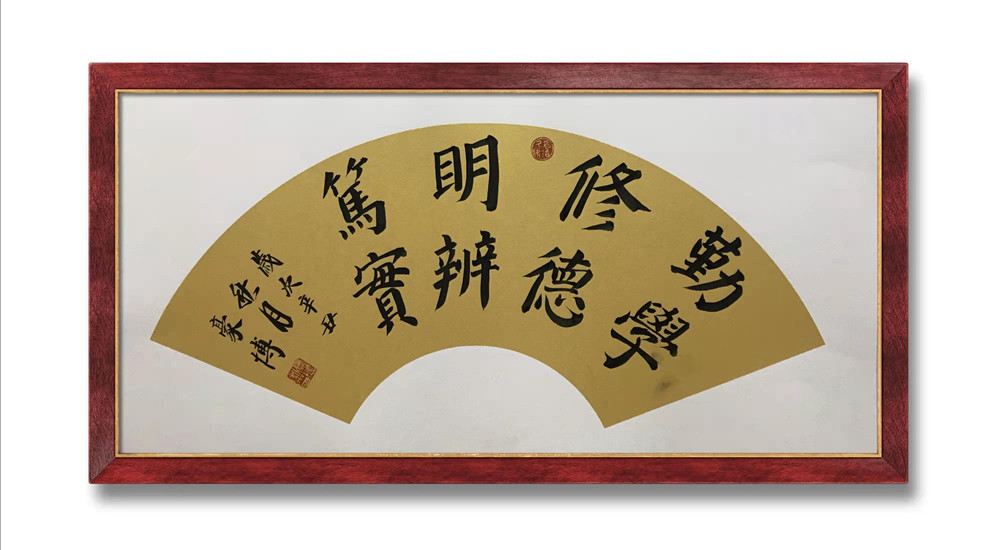 勤學
修德
明辨
篤實
歲次辛丑
秋月
豪博